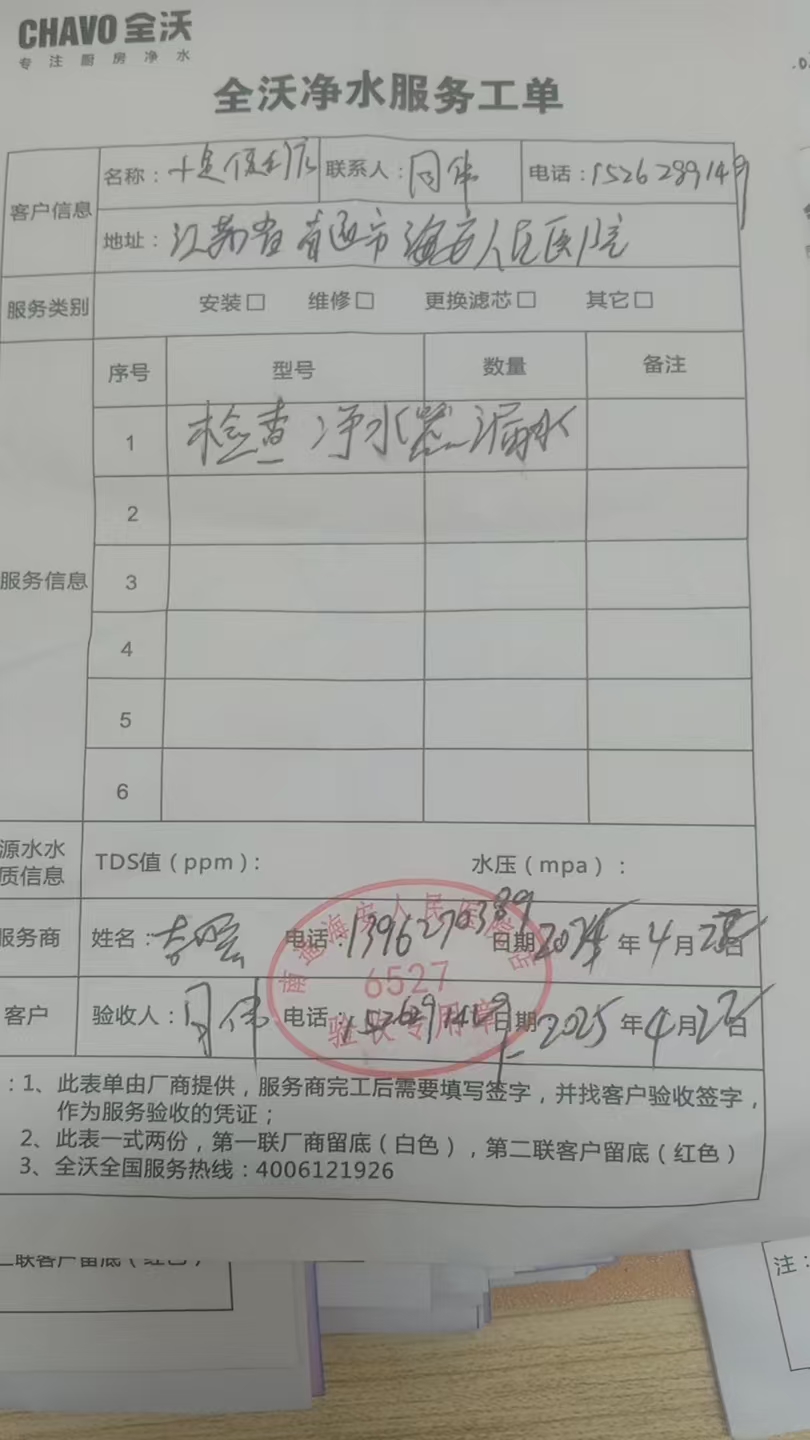 CHAVO 全沃
专注厨房净水
全沃净水服务工单
客户信息
名称：十足便利店 联系人：周伟 电话：15262991149
地址：江苏省南通市海安人民医院
服务类别 安装□ 维修□ 更换滤芯□ 其它□
服务信息
序号 型号 数量 备注
1 检查净水器漏水
2
3
4
5
6
源水水
质信息
TDS值（ppm）： 水压（mpa）：
服务商 姓名： 电话： 日期2025年4月 日
南通海安人民医院店
6527
验收专用章
客户 验收人：周伟 电话： 日期2025年4月 日
：1、此表单由厂商提供，服务商完工后需要填写签字，并找客户验收签字，
作为服务验收的凭证；
2、此表一式两份，第一联厂商留底（白色），第二联客户留底（红色）
3、全沃全国服务热线：4006121926
二联客户留底（红色）
注：